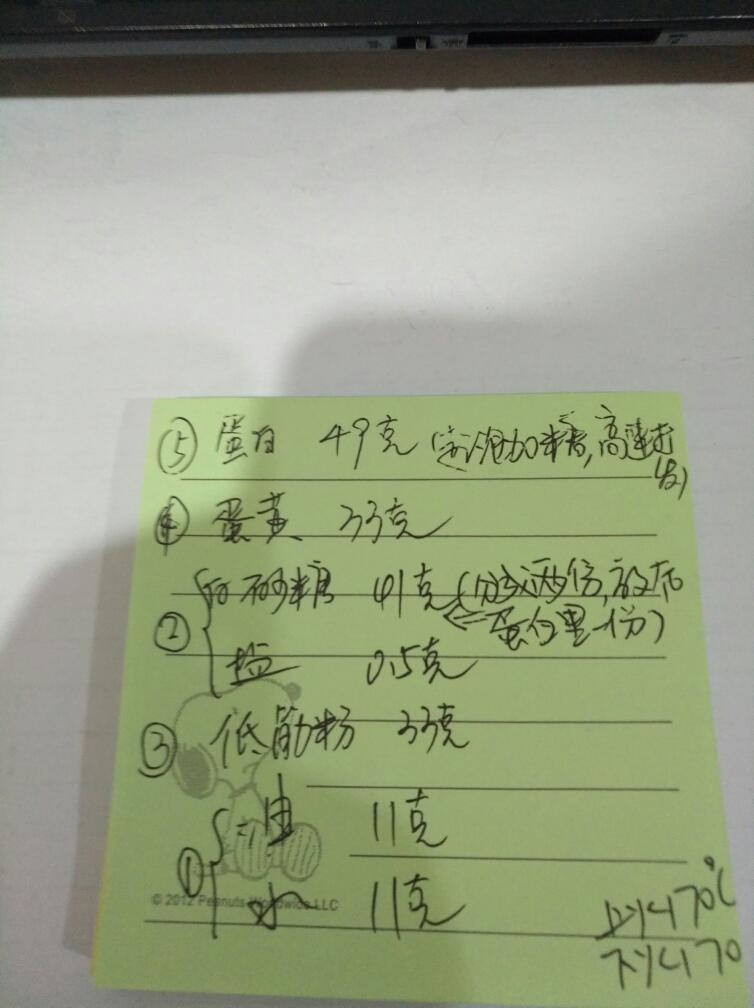 ⑤ 蛋白 49克(分次加糖,高速打
发)
④ 蛋黄 33克
白砂糖 41克(分成两份,放在
② 蛋白里一份)
盐 0.5克
③ 低筋粉 33克
油 11克
①
© 2012 Peanuts Worldwide LLC
水 11克
上火170℃
下火170